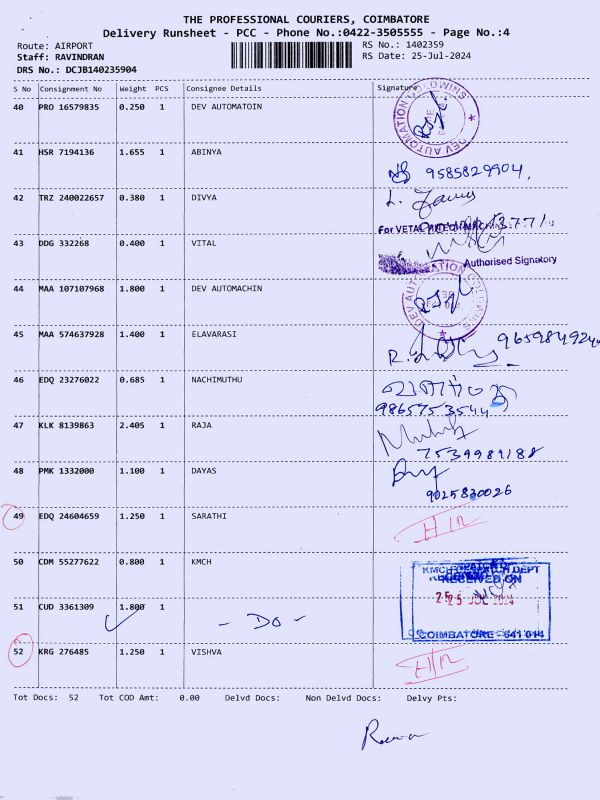 THE PROFESSIONAL COURIERS, COIMBATORE
Delivery Runsheet - PCC - Phone No.:0422-3505555 - Page No.:4
Route: AIRPORT
RS No.: 1402359
Staff: RAVINDRAN
RS Date: 25-Jul-2024
DRS No.: DCJB140235904
S No Consignment No Weight PCS Consignee Details Signature
40 PRO 16579835 0.250 1 DEV AUTOMATOIN
DEV AUTOMATION GOLDWINS
41 HSR 7194136 1.655 1 ABINYA
9585829904,
42 TRZ 240022657 0.380 1 DIVYA
For VETAL
43 DDG 332268 0.400 1 VITAL
Authorised Signatory
44 MAA 107107968 1.800 1 DEV AUTOMACHIN
45 MAA 574637928 1.400 1 ELAVARASI
46 EDQ 23276022 0.685 1 NACHIMUTHU
9865753544
47 KLK 8139863 2.405 1 RAJA
7539989188
48 PMK 1332000 1.100 1 DAYAS
9025830026
49 EDQ 24604659 1.250 1 SARATHI
50 CDM 55277622 0.800 1 KMCH
KMCH DEPT
RECEIVED ON
25 JUL 2024
COIMBATORE - 641 014
51 CUD 3361309 1.800 1
- DO -
52 KRG 276485 1.250 1 VISHVA
Tot Docs: 52 Tot COD Amt: 0.00 Delvd Docs: Non Delvd Docs: Delvy Pts: